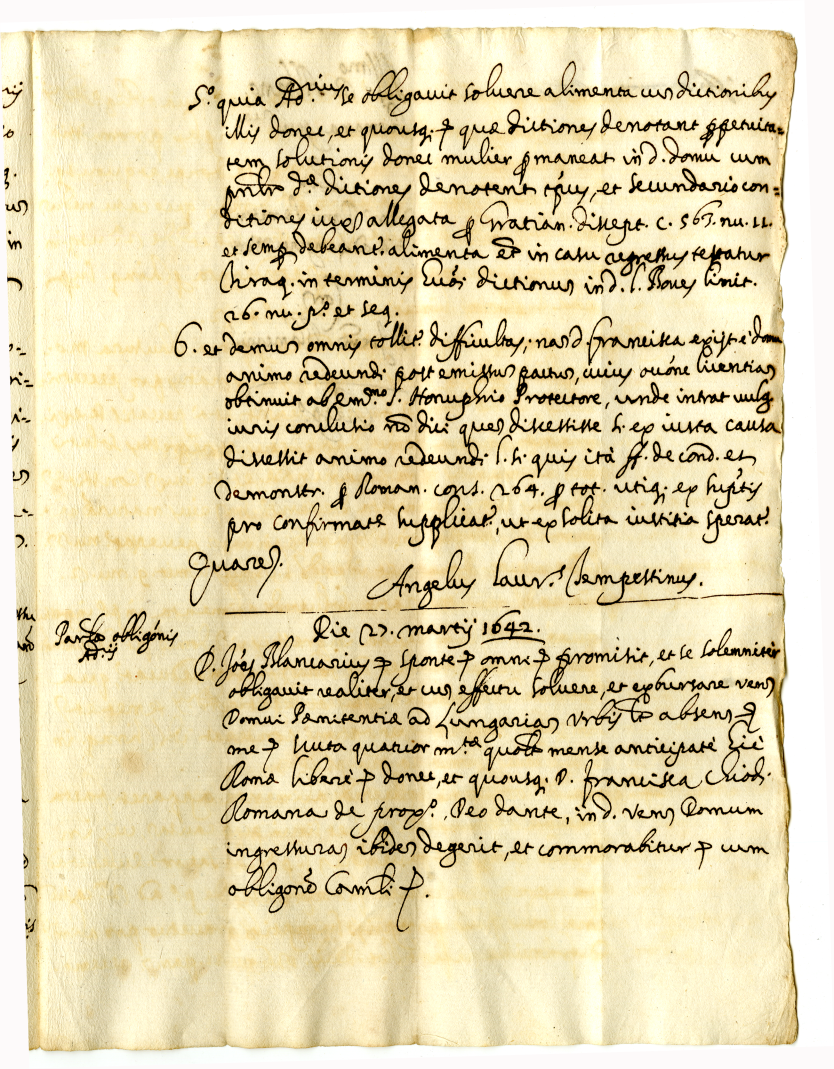 5.° quia Ad.rius se obligavit solvere alimenta cum dictionibus
illis donec, et quousq; p quae dictiones denotant ppetuita=
tem solutionis donec mulier pmaneat in d. domu cum
dae dictiones denotent tpus, et secundario con=
ditiones iux allegata p Gratian. discept. c. 563. nu. 11.
et semp debeant. alimenta et in casu regressus testatur
Chirag. in terminis dictionum in d. l. Boves limit.
26. nu. p.° et seq.
6. et demum omnis tollit difficultas; nam d. Francisca exist è domu
animo redeundi post emissum partum, cuius licentiam
obtinuit ab Em.mo S. Honuphrio Protectore, unde intrat vulg.
iuris conclusio no dici quem discessisse si ex iusta causa
discessit animo redeundi l. si quis ità ff. de cond. et
demonstr. p Roman. cons. 264. p tot. utiq; ex
pro confirmat.e supplicat., ut ex solita iustitia sperat.
Quare
Angelus Laur.s Tempestinus.
Die 27. martij 1642.
obligonis
Ad.rij
D. Joes Blancarius p sponte p omni p promisit, et se solemniter
obligavit realiter, et cum effectu solvere, et exbursare ven
Domui Paenitentiae ad Lungariam Urbis absen
me p scuta quatuor m.tae quolt mense anticipatè hic
Romae liberè p donec, et quousq; D. Francisca Chiod.
Romana de prox.°, Deo dante, in d. ven Domum
ingressuram ibidem degerit, et commorabitur p cum
obligone Camli p.